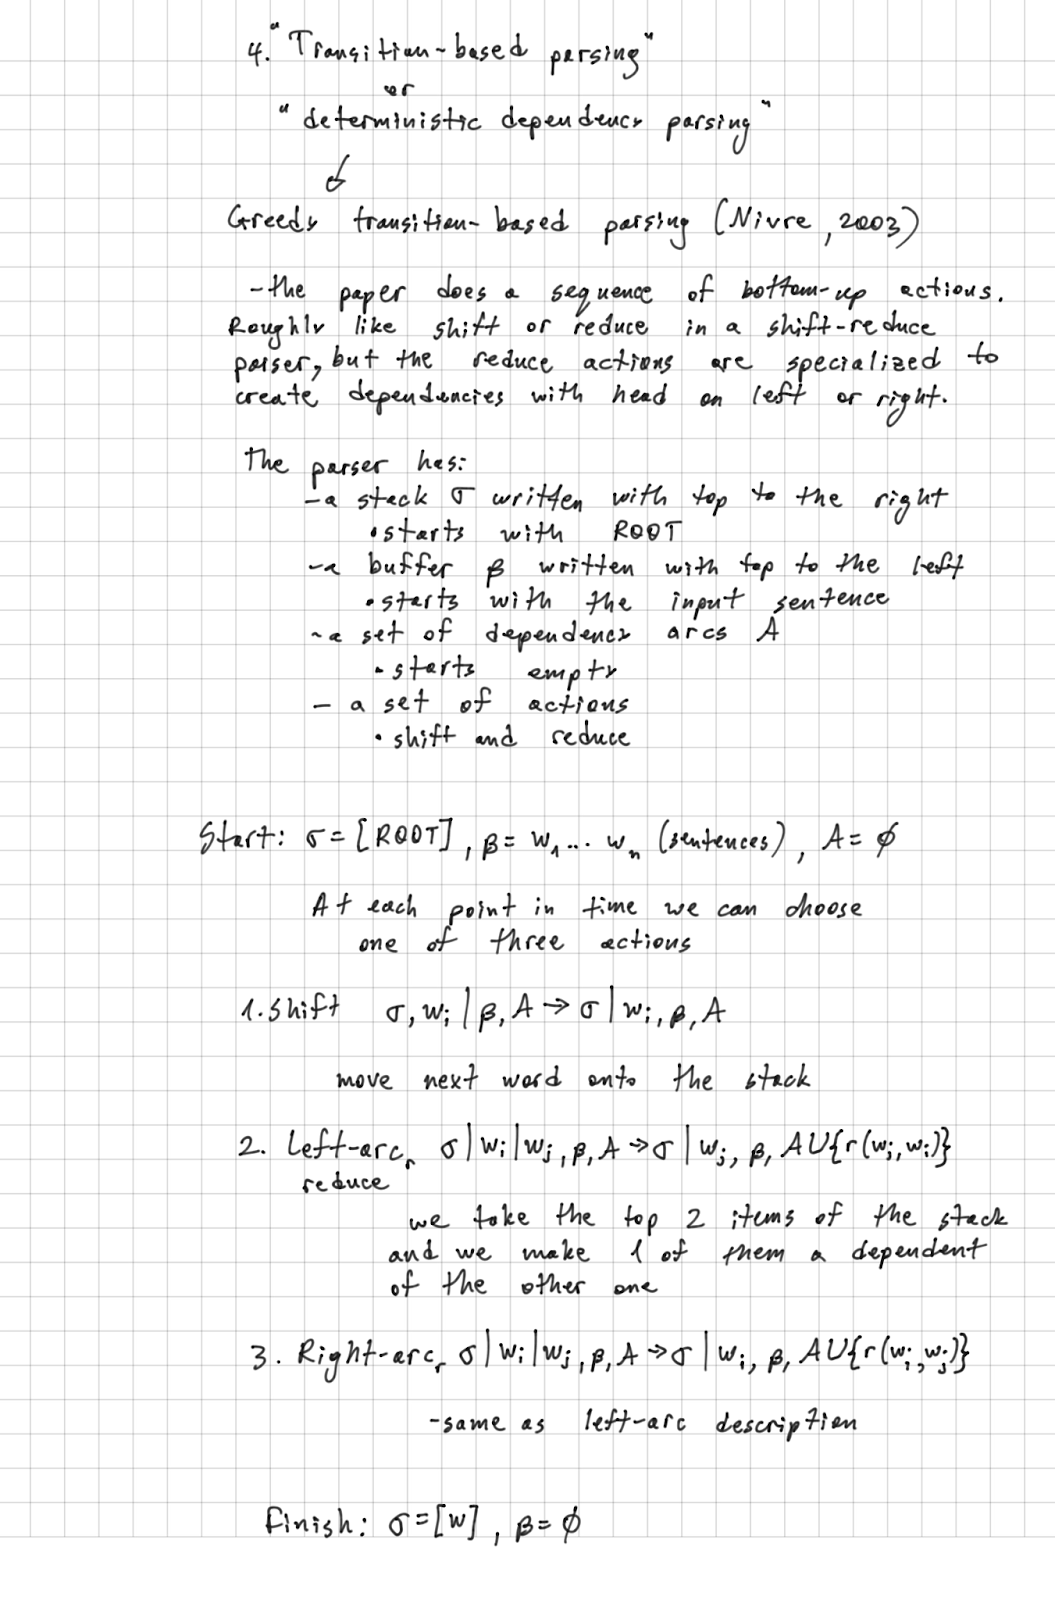 4. "Transition-based parsing"
or
"deterministic dependency parsing"
Greedy transition-based parsing (Nivre, 2003)
-the paper does a sequence of bottom-up actions.
Roughly like shift or reduce in a shift-reduce
parser, but the reduce actions are specialized to
create dependencies with head on left or right.
The parser has:
-a stack σ written with top to the right
•starts with ROOT
-a buffer β written with top to the left
•starts with the input sentence
-a set of dependency arcs A
•starts empty
- a set of actions
•shift and reduce
Start: σ=[ROOT], β= w₁... wₙ (sentences), A=∅
At each point in time we can choose
one of three actions
1. Shift σ, wᵢ|β, A → σ|wᵢ, β, A
move next word onto the stack
2. Left-arcᵣ σ|wᵢ|wⱼ, β, A → σ|wⱼ, β, A∪{r(wⱼ,wᵢ)}
reduce
we take the top 2 items of the stack
and we make 1 of them a dependent
of the other one
3. Right-arcᵣ σ|wᵢ|wⱼ, β, A → σ|wᵢ, β, A∪{r(wᵢ,wⱼ)}
-same as left-arc description
Finish: σ=[w], β=∅